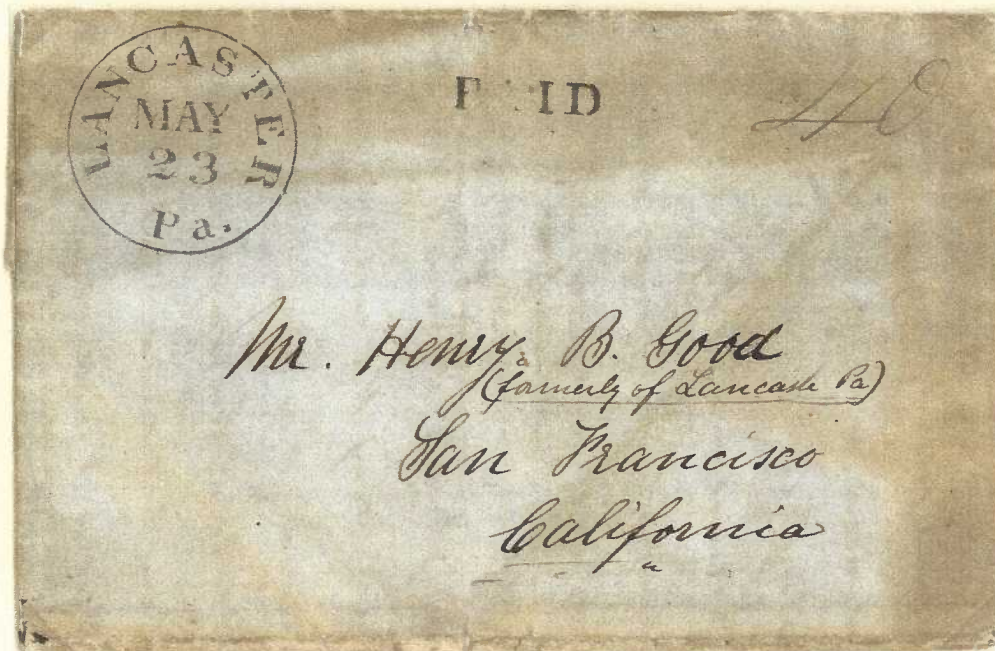 LANCASTER
MAY
23
Pa.
P ID
40
Mr. Henry B. Good
(formerly of Lancaster Pa)
San Francisco
California